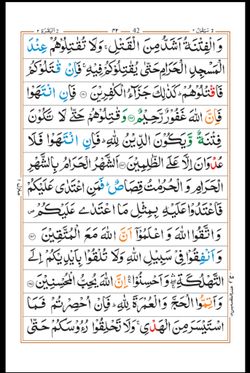 وَ الْفِتْنَةُ اَشَدُّ مِنَ الْقَتْلِ ۚ وَلَا تُقٰتِلُوْهُمْ عِنْدَ
الْمَسْجِدِ الْحَرَامِ حَتّٰى يُقٰتِلُوْكُمْ فِيْهِ ۚ فَاِنْ قٰتَلُوْكُمْ
فَاقْتُلُوْهُمْ ؕ كَذٰلِكَ جَزَآءُ الْكٰفِرِيْنَ فَاِنِ انْتَهَوْا
فَاِنَّ اللّٰهَ غَفُوْرٌ رَّحِيْمٌ وَقٰتِلُوْهُمْ حَتّٰى لَا تَكُوْنَ
فِتْنَةٌ وَّيَكُوْنَ الدِّيْنُ لِلّٰهِ ؕ فَاِنِ انْتَهَوْا فَلَا
عُدْوَانَ اِلَّا عَلَى الظّٰلِمِيْنَ اَلشَّهْرُ الْحَرَامُ بِالشَّهْرِ
الْحَرَامِ وَ الْحُرُمٰتُ قِصَاصٌ ؕ فَمَنِ اعْتَدٰى عَلَيْكُمْ
فَاعْتَدُوْا عَلَيْهِ بِمِثْلِ مَا اعْتَدٰى عَلَيْكُمْ ۪
وَ اتَّقُوا اللّٰهَ وَ اعْلَمُوْۤا اَنَّ اللّٰهَ مَعَ الْمُتَّقِيْنَ
وَ اَنْفِقُوْا فِيْ سَبِيْلِ اللّٰهِ وَلَا تُلْقُوْا بِاَيْدِيْكُمْ اِلَى
التَّهْلُكَةِ ۛۚ وَ اَحْسِنُوْا ۛۚ اِنَّ اللّٰهَ يُحِبُّ الْمُحْسِنِيْنَ
وَ اَتِمُّوا الْحَجَّ وَ الْعُمْرَةَ لِلّٰهِ ؕ فَاِنْ اُحْصِرْتُمْ فَمَا
اسْتَيْسَرَ مِنَ الْهَدْيِ ۚ وَلَا تَحْلِقُوْا رُءُوْسَكُمْ حَتّٰى